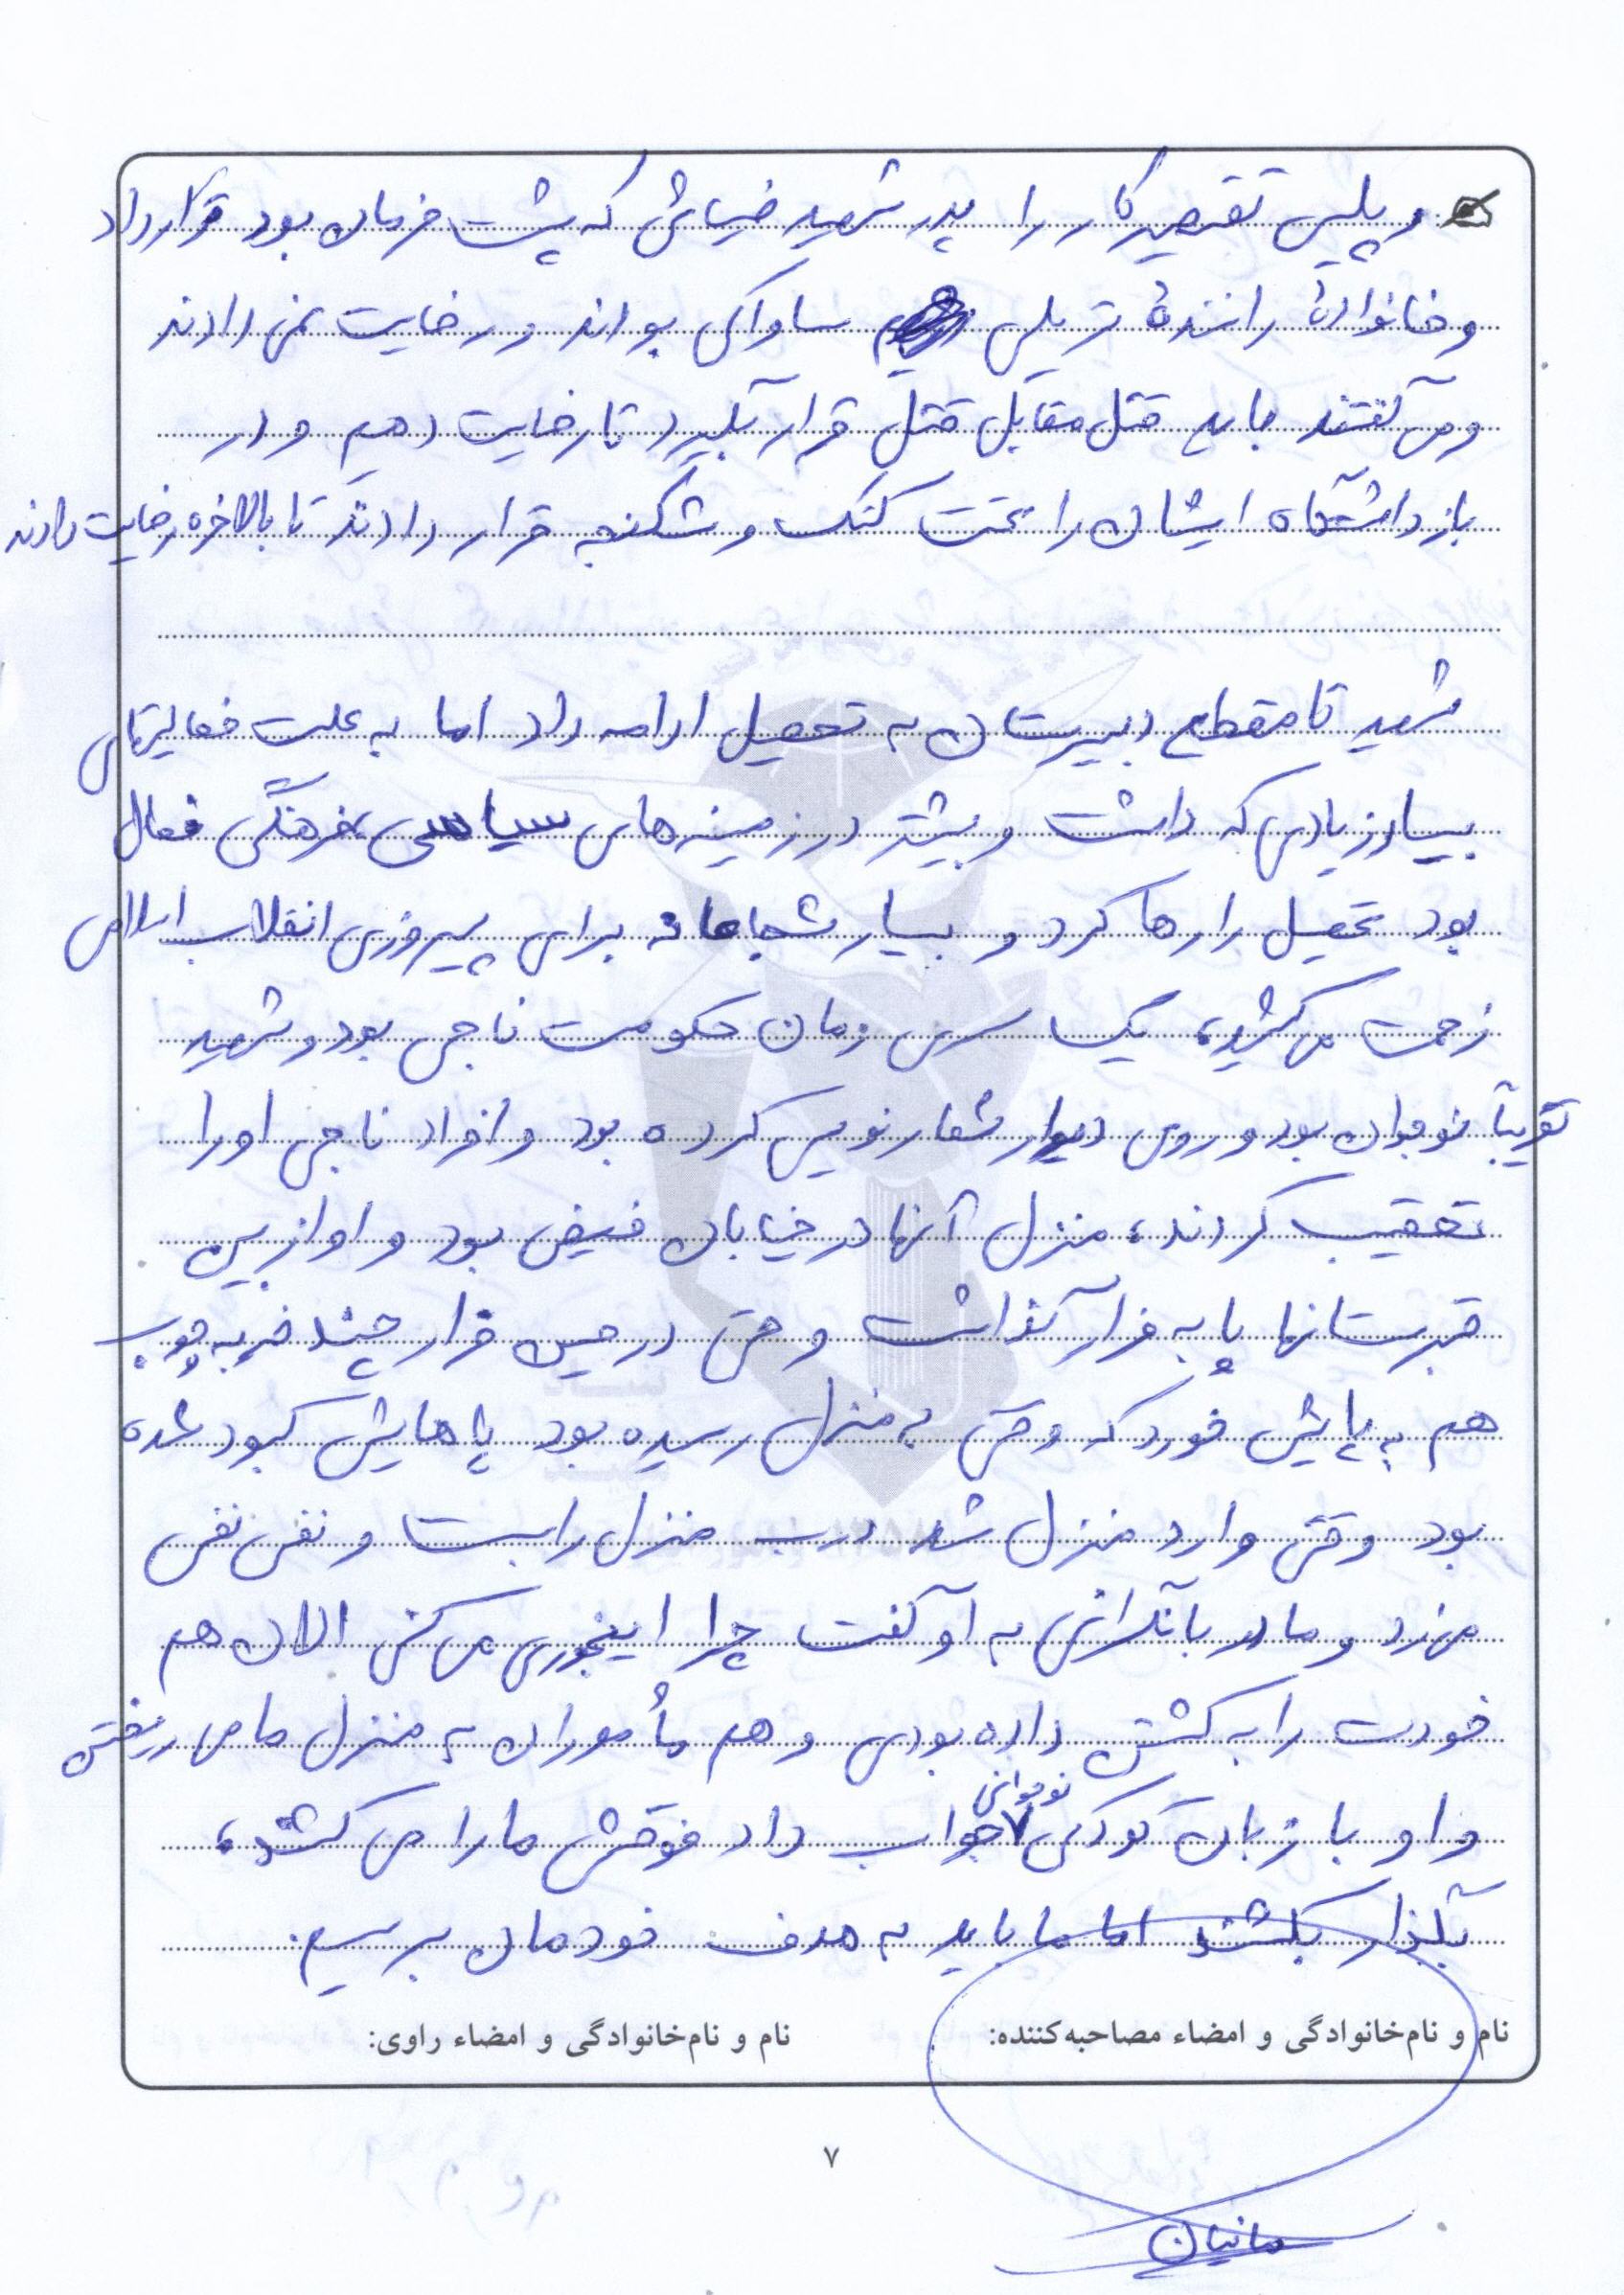 و پلیس تقصیر کار را پدر شهید ضیائی که پشت فرمان بود قرار داد
و خانوادهٔ رانندهٔ تریلی ساواکی بودند و رضایت نمی دادند
و می گفتند باید قتل مقابل قتل قرار بگیرد تا رضایت دهیم و در
بازداشتگاه ایشان را تحت کتک و شکنجه قرار دادند تا بالاخره رضایت دادند
شهید تا مقطع دبیرستان به تحصیل ادامه داد اما به علت فعالیتهای
بسیار زیادی که داشت و بیشتر در زمینه های سیاسی، فرهنگی فعال
بود تحصیل را رها کرد و بسیار شجاعانه برای پیروزی انقلاب اسلامی
زحمت می کشید، یک سری زمان حکومت ناجی بود و شهید
تقریباً نوجوان بود و روی دیوار شعار نویسی کرده بود و افراد ناجی او را
تعقیب کردند، منزل آنها در خیابان فیض بود و او از بین
قبرستانها پا به فرار گذاشت و حتی در حین فرار چند ضربه چوب
هم به پایش خورد که وقتی به منزل رسیده بود پاهایش کبود شده
بود وقتی وارد منزل شد درب منزل را بست و نفس نفس
می زد و مادر با نگرانی به او گفت چرا اینجوری می کنی الان هم
خودت را به کشتن داده بودی و هم مأموران به منزل ما می ریختن
و او با زبان کودکی نوجوانی جواب داد فوقش ما را می کشند،
بگذار بکشند اما ما باید به هدف خودمان برسیم.
نام و نام‌خانوادگی و امضاء مصاحبه‌کننده:
نام و نام‌خانوادگی و امضاء راوی:
۷
مانیان